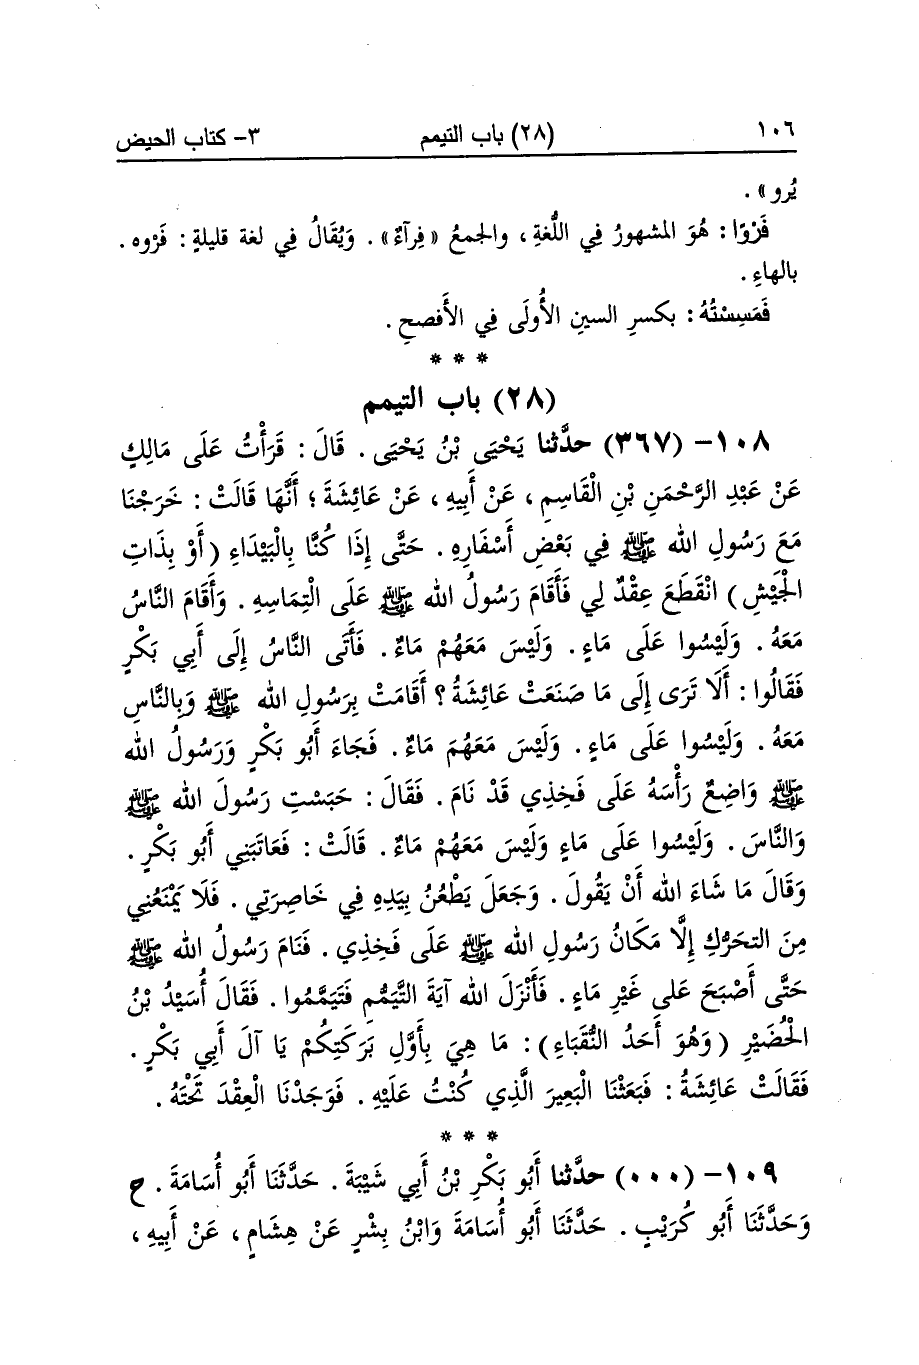 ١٠٦ (٢٨) باب التيمم ٣- كتاب الحيض
يُرو» .
فَرْوًا : هُوَ المشهورُ فِي اللُّغةِ ، والجمعُ «فِرآءٌ» . وَيُقَالُ فِي لغة قليلةٍ : فَرْوه .
بالهاءِ .
فَمَسِسْتُهُ : بكسرِ السينِ الأُولَى فِي الأَفصحِ .
* * *
(٢٨) باب التيمم
١٠٨- (٣٦٧) حدَّثنا يَحْيَى بْنُ يَحْيَى . قَالَ : قَرَأْتُ عَلَى مَالِكٍ
عَنْ عَبْدِ الرَّحْمَنِ بْنِ الْقَاسِمِ ، عَنْ أَبِيهِ ، عَنْ عَائِشَةَ ؛ أَنَّهَا قَالَتْ : خَرَجْنَا
مَعَ رَسُولِ الله ﷺ فِي بَعْضِ أَسْفَارِهِ . حَتَّى إِذَا كُنَّا بِالْبَيْدَاءِ (أَوْ بِذَاتِ
الْجَيْشِ) انْقَطَعَ عِقْدٌ لِي فَأَقَامَ رَسُولُ الله ﷺ عَلَى الْتِمَاسِهِ . وَأَقَامَ النَّاسُ
مَعَهُ . وَلَيْسُوا عَلَى مَاءٍ . وَلَيْسَ مَعَهُمْ مَاءٌ . فَأَتَى النَّاسُ إِلَى أَبِي بَكْرٍ
فَقَالُوا : أَلَا تَرَى إِلَى مَا صَنَعَتْ عَائِشَةُ ؟ أَقَامَتْ بِرَسُولِ الله ﷺ وَبِالنَّاسِ
مَعَهُ . وَلَيْسُوا عَلَى مَاءٍ . وَلَيْسَ مَعَهُمْ مَاءٌ . فَجَاءَ أَبُو بَكْرٍ وَرَسُولُ الله
ﷺ وَاضِعٌ رَأْسَهُ عَلَى فَخِذِي قَدْ نَامَ . فَقَالَ : حَبَسْتِ رَسُولَ الله ﷺ
وَالنَّاسَ . وَلَيْسُوا عَلَى مَاءٍ وَلَيْسَ مَعَهُمْ مَاءٌ . قَالَتْ : فَعَاتَبَنِي أَبُو بَكْرٍ .
وَقَالَ مَا شَاءَ الله أَنْ يَقُولَ . وَجَعَلَ يَطْعُنُ بِيَدِهِ فِي خَاصِرَتِي . فَلَا يَمْنَعُنِي
مِنَ التحَرُّكِ إِلَّا مَكَانُ رَسُولِ الله ﷺ عَلَى فَخِذِي . فَنَامَ رَسُولُ الله ﷺ
حَتَّى أَصْبَحَ عَلَى غَيْرِ مَاءٍ . فَأَنْزَلَ الله آيَةَ التَّيَمُّمِ فَتَيَمَّمُوا . فَقَالَ أُسَيْدُ بْنُ
الْحُضَيْرِ (وَهُوَ أَحَدُ النُّقَبَاءِ) : مَا هِيَ بِأَوَّلِ بَرَكَتِكُمْ يَا آلَ أَبِي بَكْرٍ .
فَقَالَتْ عَائِشَةُ : فَبَعَثْنَا الْبَعِيرَ الَّذِي كُنْتُ عَلَيْهِ . فَوَجَدْنَا الْعِقْدَ تَحْتَهُ .
* * *
١٠٩- (٠٠٠) حدَّثنا أَبُو بَكْرِ بْنُ أَبِي شَيْبَةَ . حَدَّثَنَا أَبُو أُسَامَةَ . ح
وَحَدَّثَنَا أَبُو كُرَيْبٍ . حَدَّثَنَا أَبُو أُسَامَةَ وَابْنُ بِشْرٍ عَنْ هِشَامٍ ، عَنْ أَبِيهِ ،